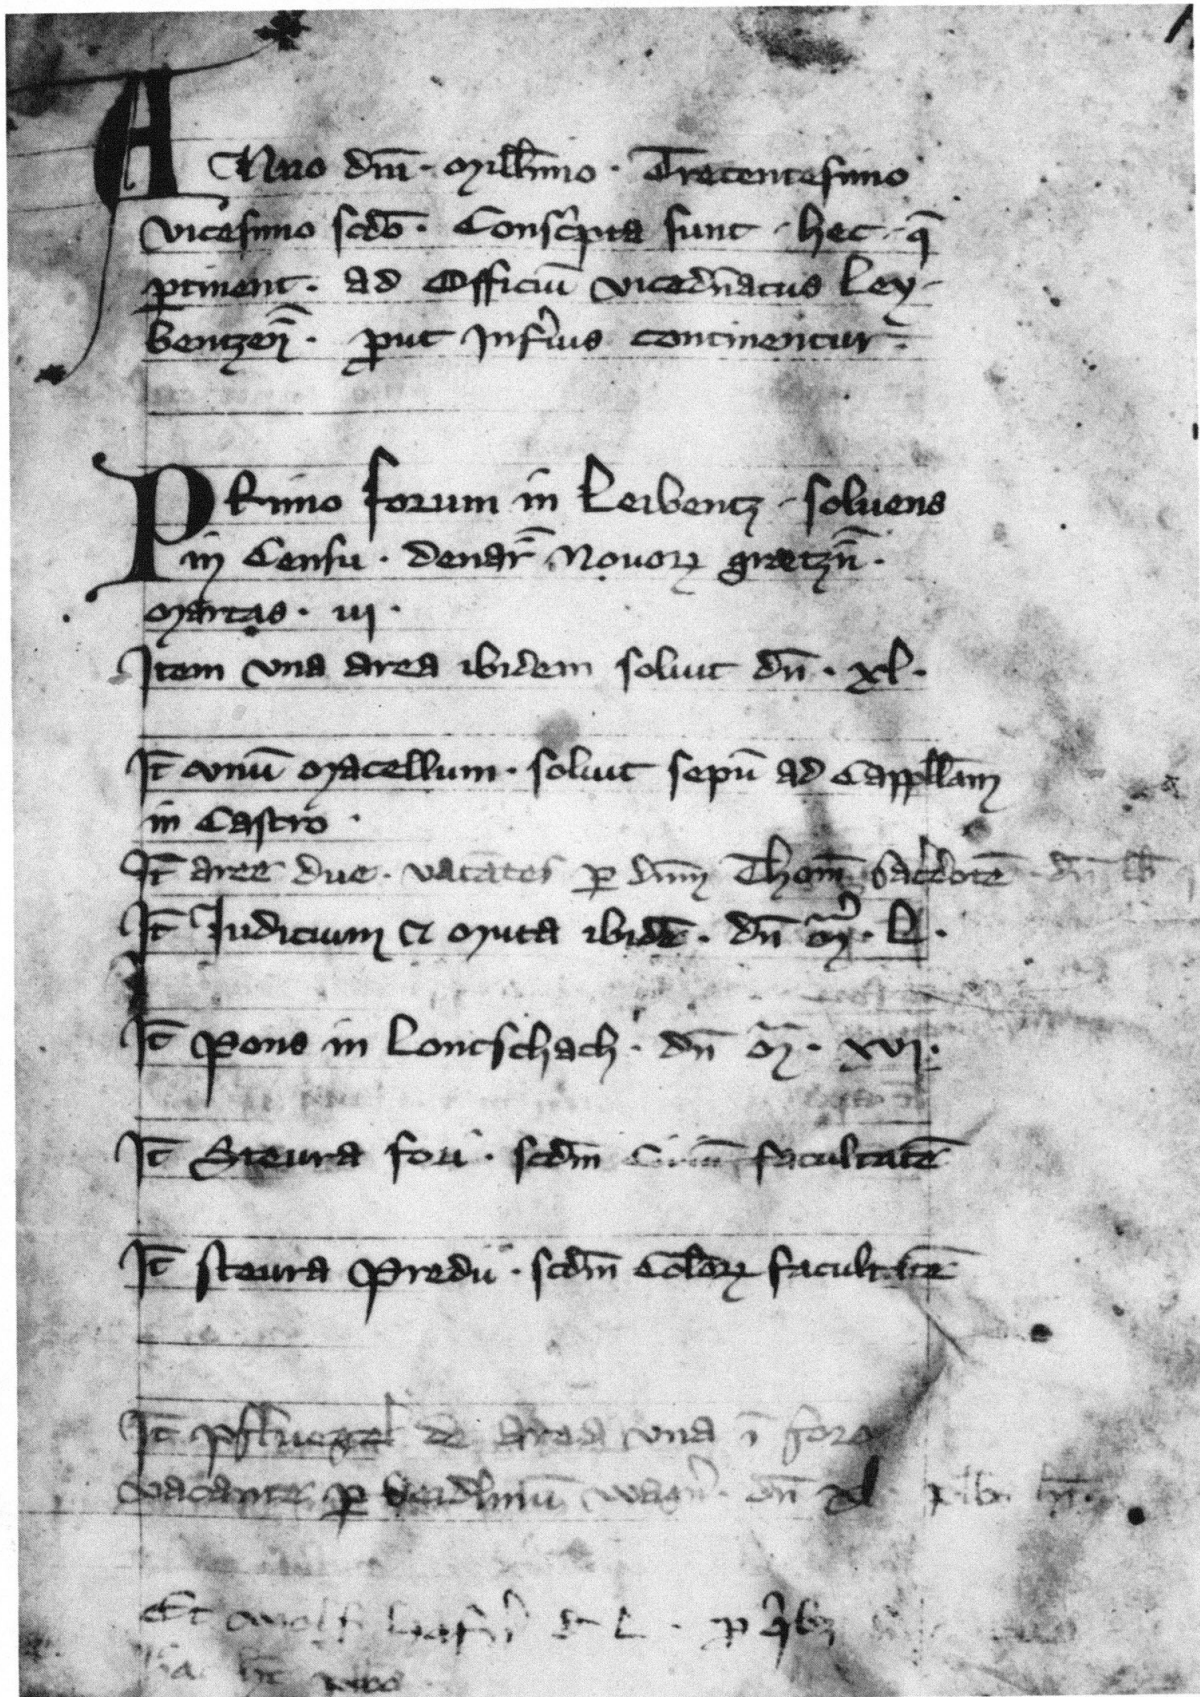 ANno dn̄i · Mill̄imo · Trecentesimo
vicesimo scdō · Consc'pta sunt · hec · q̄
ꝑtinent · ad Officiū vicedn̄atus Ley-
bentzen̄ · ꝓut Inferius continentur ·
PRimo forum in Leibentz · soluens
in Censu · denar̄ Nouoꝝ gretzn̄ ·
Marcas · iij ·
Item vna area ibidem soluit dn̄ · xl ·
It̄ vnū Macellum · soluit sepū ad Cappll̄am
in Castro ·
It̄ aree due · vacātes ꝑ dn̄m Thom̄ sac̄dotē · dn̄
It̄ Iudicium et Muta ibidē · dn̄ M̄r · L ·
It̄ Pons in Lontschach · dn̄ M̄r · xvi ·
It̄ Steura fori · scdm̄ facultatē
It̄ steura Predii · scdm̄ Coloꝝ facultatē
It̄ de area vna ī foro
vacante ꝑ dn̄ xl
Et